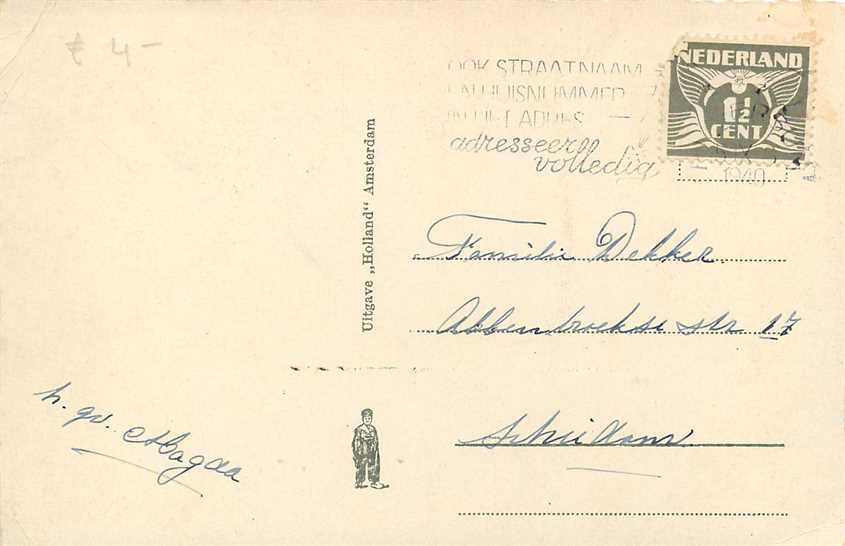 € 4-
OOK STRAATNAAM
EN HUISNUMMER
IN HET ADRES
adresseer
volledig
NEDERLAND
1½
CENT
1940
Uitgave „Holland" Amsterdam
Familie Dekker.
Abbenbroekse str 17
Schiedam
h. gr. Magda